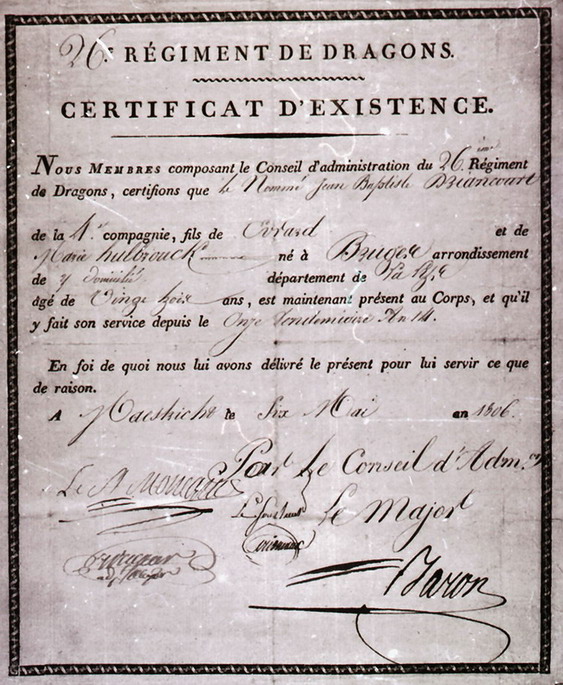 26.e RÉGIMENT DE DRAGONS.
CERTIFICAT D'EXISTENCE.
NOUS MEMBRES composant le Conseil d'administration du 26 ème Régiment
de Dragons, certifions que le Nommé Jean Baptiste Briancourt
de la 4.e compagnie, fils de Evrard et de
Marie hulbrouck né à Bruges arrondissement
de y domicilié département de La Lys
âgé de Vingt trois ans, est maintenant présent au Corps, et qu'il
y fait son service depuis le Onze Vendemiaire An 14.
En foi de quoi nous lui avons délivré le présent pour lui servir ce que
de raison.
A Maestricht le Six Mai an 1806.
Par Le Conseil d'Adm.on
Le
Le Major
Baron